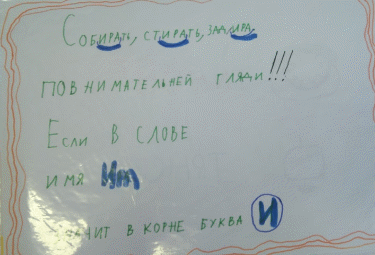 Собирать, стирать, задира,
повнимательней гляди!!!
Если в слове
имя Ира
значит в корне буква И